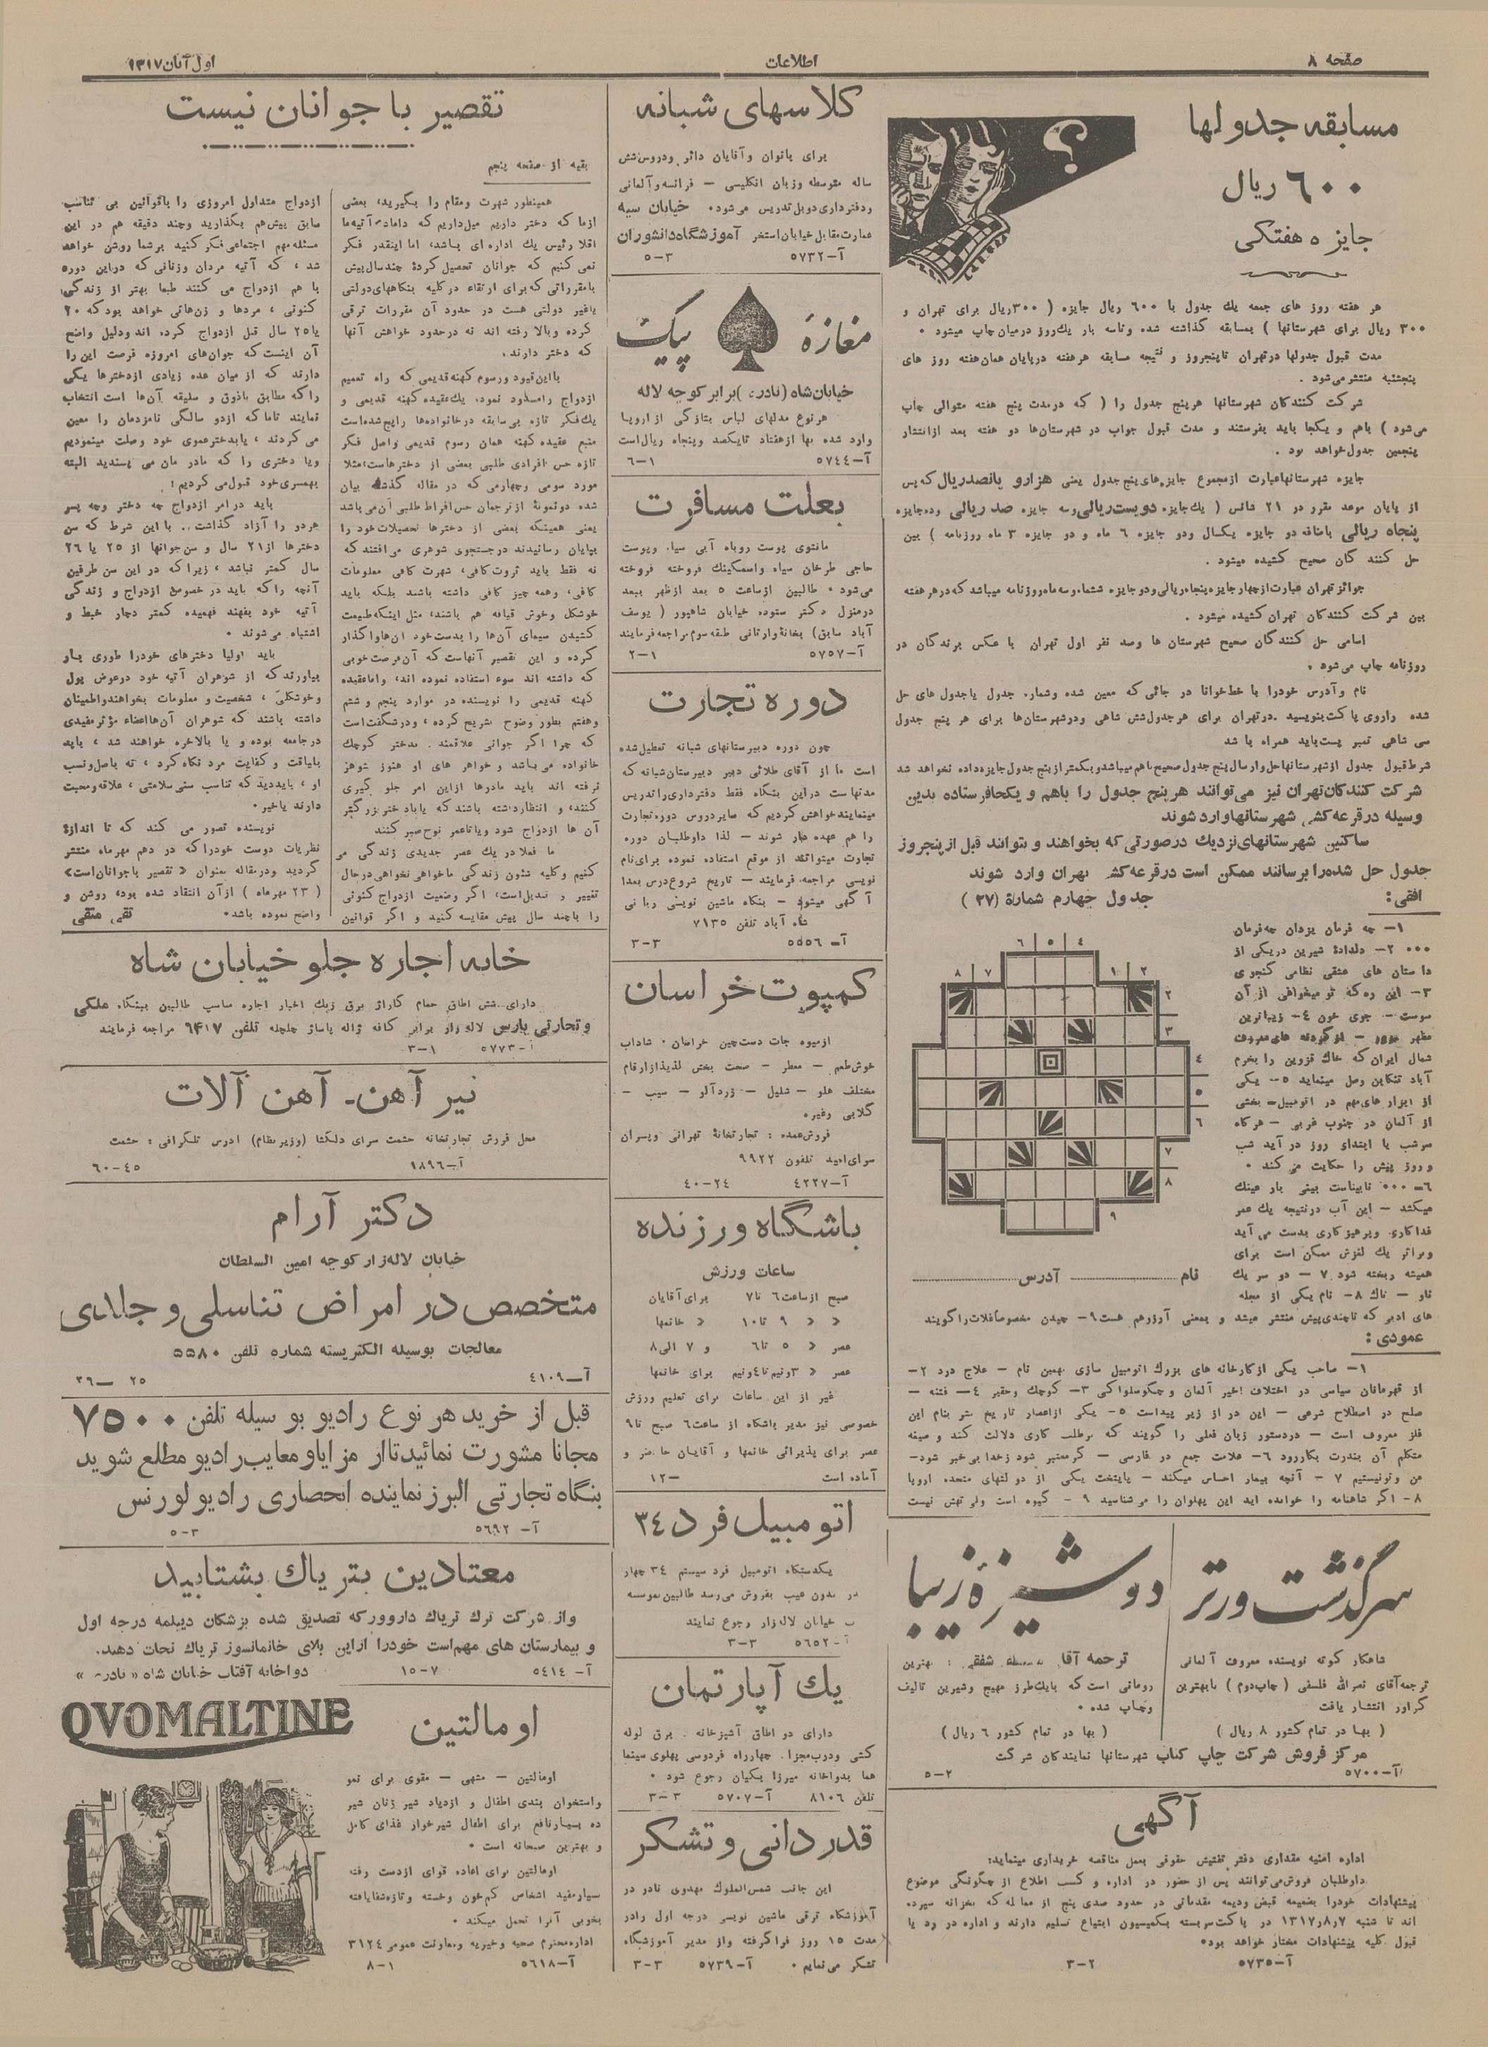 صفحه ۸
اطلاعات
اول آبان ۱۳۱۷
مسابقه جدولها
۶۰۰ ریال
جایزه هفتگی
هر هفته روز های جمعه یك جدول با ۶۰۰ ریال جایزه ( ۳۰۰ ریال برای تهران و
۳۰۰ ریال برای شهرستانها ) بمسابقه گذاشته شده وتاسه بار یك روز درمیان چاپ میشود ۰
مدت قبول جدولها درتهران تاپنجروز و نتیجه مسابقه هرهفته درپایان همان هفته روز های
پنجشنبه منتشر می‌شود .
شرکت کنندگان شهرستانها هرپنج جدول را ( که درمدت پنج هفته متوالی چاپ
می‌شود ) باهم و یکجا باید بفرستند و مدت قبول جواب در شهرستان‌ها دو هفته بعد ازانتشار
پنجمین جدول خواهد بود .
جایزه شهرستانها عبارت ازمجموع جایزه‌های پنج جدول یعنی هزارو پانصدریال که پس
از پایان موعد مقرر در ۲۱ شانس ( یك جایزه دویست ریالی وسه جایزه صد ریالی وده جایزه
پنجاه ریالی باضافه دو جایزه یکسال ودو جایزه ۶ ماه و دو جایزه ۳ ماه روزنامه ) بین
حل کنند گان صحیح کشیده میشود .
جوائز تهران عبارت ازچهار جایزه پنجاه ریالی ودو جایزه ششماه وسه ماه روزنامه میباشد که درهر هفته
بین شرکت کنندگان تهران کشیده میشود .
اسامی حل کنندگان صحیح شهرستان ها وصد نفر اول تهران با عکس برندگان در
روزنامه چاپ می‌شود .
نام وآدرس خودرا با خط خوانا در جائی که معین شده وشماره جدول یا جدول های حل
شده راروی پاکت بنویسید . درتهران برای هرجدول شش شاهی ودوشهرستان‌ها برای هر پنج جدول
سی شاهی تمبر پست باید همراه باشد
شرط قبول جدول ازشهرستانها حل وارسال پنج جدول صحیح باهم میباشد و بکمتر از پنج جدول جایزه داده نخواهد شد
شرکت کنندگان تهران نیز می‌توانند هرپنج جدول را باهم و یکجا فرستاده بدین
وسیله درقرعه کشی شهرستانها وارد شوند
ساکنین شهرستانهای نزدیك درصورتی که بخواهند و بتوانند قبل از پنجروز
جدول حل شده را برسانند ممکن است درقرعه کشی تهران وارد شوند
جدول چهارم شماره (۲۷ )
افقی :
۱- چه فرمان یزدان چه فرمان
۰۰۰ ۲- دلدادهٔ شیرین دریکی از
داستان های عشقی نظامی گنجوی
۳- این ره که تو میخواهی از آن
سوست - جوی خون ۴- زیباترین
شمال ایران که خاك قزوین را بخرم
آباد تنکابن وصل مینماید ۵- یکی
از ابزار های مهم در اتومبیل - بخشی
از آلمان در جنوب غربی - هرگاه
سرشب یا ابتدای روز در آید شب
و روز پیش را حکایت می کند .
۶- ۰۰۰ نابیناست بینی بار عینك
میکشد - این آب درنتیجه یك عمر
فداکاری وپرهیز کاری بدست می آید
وبراثر یك لغزش ممکن است برای
همیشه ریخته شود ۷ - دو سر یك
گاو - تاك ۸- نام یکی از مجله
های ادبی که تاچندی پیش منتشر میشد و بمعنی آرزوهم هست ۹- چیدن مخصوصا غلات را گویند
نام آدرس
عمودی :
۱- صاحب یکی ازکارخانه های بزرك اتومبیل سازی بهمین نام - علاج درد ۲-
از قهرمانان سیاسی در اختلاف اخیر آلمان و چکوسلواکی ۳- کوچك وحقیر ۴- فتنه -
صلح در اصطلاح شرعی - این در از زیر پیداست ۵- یکی ازاعصار تاریخ بشر بنام این
فلز معروف است - دردستور زبان فعلی را گویند که برطلب کاری دلالت کند و صیغه
متکلم آن بندرت بکاررود ۶- علامت جمع در فارسی - گرمعتبر شود زخدا بی خبر شود -
من وتونیستیم ۷ - آنچه بیمار احساس میکند - پایتخت یکی از دولتهای متحده اروپا
۸- اگر شاهنامه را خوانده اید این پهلوان را می شناسید ۹ - گیوه است ولی تهش نیست
سرگذشت ورتر
شاهکار گوته نویسنده معروف آلمانی
ترجمه آقای نصرالله فلسفی ( چاپ دوم ) با بهترین
گراور انتشار یافت
( بها در تمام کشور ۸ ریال )
دوشیزهٔ زیبا
ترجمه آقای شفقی : بهترین
رومانی است که بایك طرز مهیج وشیرین تالیف
وچاپ شده .
( بها در تمام کشور ۶ ریال )
مرکز فروش شرکت چاپ کتاب شهرستانها نمایندگان شرکت
آ-۵۷۰۰ ۲-۵
آگهی
اداره امنیه مقداری دفتر تفتیش حقوقی بعمل مناقصه خریداری مینماید:
داوطلبان فروش می‌توانند پس از حضور در اداره و کسب اطلاع از چگونگی موضوع
پیشنهادات خودرا بضمیمه قبض ودیعه مقدماتی در حدود صدی پنج از معامله که بخزانه سپرده
اند تا شنبه ۱۳۱۷٫۸٫۷ در پاکت سربسته بکمیسیون ابتیاع تسلیم دارند و اداره در رد یا
قبول کلیه پیشنهادات مختار خواهد بود .
آ-۵۷۳۵ ۲-۳
کلاسهای شبانه
برای بانوان وآقایان دائر ودروس شش
ساله متوسطه وزبان انگلیسی - فرانسه وآلمانی
ودفترداری دوبل تدریس می‌شود . خیابان سپه
عمارت مقابل خیابان استخر آموزشگاه دانشوران
آ-۵۷۳۲ ۳-۵
مغازهٔ پیک
خیابان شاه (نادری) برابر کوچه لاله
هرنوع مدلهای لباس بتازگی ازاروپا
وارد شده بها ازهفتاد تایکصد وپنجاه ریال است
آ-۵۷۴۴ ۱-۶
بعلت مسافرت
مانتوی پوست روباه آبی سیاه وپوست
حاجی طرخان سیاه واسمکینك فروخته
می‌شود . طالبین ازساعت ۵ بعد ازظهر ببعد
درمنزل دکتر ستوده خیابان شاهپور ( یوسف
آباد سابق) بخانهٔ وارتانی طبقه سوم مراجعه فرمایند
آ-۵۷۵۷ ۱-۲
دوره تجارت
چون دوره دبیرستانهای شبانه تعطیل شده
است ما از آقای طلائی دبیر دبیرستان شبانه که
مدتهاست دراین بنگاه فقط دفترداری را تدریس
مینمایند خواهش کردیم که سایردروس دوره تجارت
را هم عهده دار شوند - لذا داوطلبان دوره
تجارت میتوانند از موقع استفاده نموده برای نام
نویسی مراجعه فرمایند - تاریخ شروع درس بعدا
آگهی میشود - بنگاه ماشین نویسی ربانی
شاه آباد تلفن ۷۱۳۵
آ-۵۵۵۶ ۳-۳
کمپوت خراسان
ازمیوه جات دست چین خراسان . شاداب
خوش طعم - معطر - صحت بخش لذیذ ازارقام
مختلف هلو - شلیل - زردآلو - سیب -
گلابی وغیره .
فروش عمده : تجارتخانهٔ تهرانی وپسران
سرای امید تلفون ۹۹۲۲
آ-۴۲۲۷ ۲۴-۴۰
باشگاه ورزنده
ساعات ورزش
صبح ازساعت ۶ تا ۷ برای آقایان
« « ۹ تا ۱۰ « خانمها
عصر « ۵ تا ۶ و ۷ الی ۸
عصر « ۳ونیم تا ۴ونیم برای خانمها
غیر از این ساعات برای تعلیم ورزش
خصوصی نیز مدیر باشگاه از ساعت ۶ صبح تا ۹
عصر برای پذیرائی خانمها و آقایان حاضر و
آماده است ۱۲-
اتومبیل فرد ۳۴
یکدستگاه اتومبیل فرد سیستم ۳۴ چهار
در بدون عیب بفروش می‌رسد طالبین بموسسه
خیابان لاله زار رجوع نمایند
آ-۵۶۵۲ ۳-۳
یك آپارتمان
دارای دو اطاق آشپزخانه . برق لوله
کشی ودرب مجزا. چهارراه فردوسی پهلوی سینما
هما بدواخانه میرزا یکیان رجوع شود .
تلفن ۸۱۰۶ آ-۵۷۰۷ ۳-۳
قدردانی وتشکر
این جانب شمس الملوك مهدوی نادر در
آموزشگاه ترقی ماشین نویسی درجه اول رادر
مدت ۱۵ روز فراگرفته واز مدیر آموزشگاه
تشکر می‌نمایم . آ-۵۷۳۹ ۳-۳
تقصیر با جوانان نیست
بقیه از صفحه پنجم
همینطور شهرت ومقام را بگیرید، بعضی
ازما که دختر داریم میل داریم که داماد آتیه ما
اقلا رئیس یك اداره ای باشد، اما اینقدر فکر
نمی کنیم که جوانان تحصیل کردهٔ چندسال پیش
بامقرراتی که برای ارتقاء درکلیه بنگاههای دولتی
یاغیر دولتی هست در حدود آن مقررات ترقی
کرده وبالا رفته اند نه درحدود خواهش آنها
که دختر دارند.
بااین قیود ورسوم کهنه قدیمی که راه تعمیم
ازدواج رامسدود نموده یك عقیده کهنه قدیمی و
یك فکر تازه بی سابقه درخانواده‌ها رایج شده است
منبع عقیده کهنه همان رسوم قدیمی واصل فکر
تازه حس افرادی طلبی بعضی از دخترهاست؛ مثلا
مورد سومی وچهارمی که در مقاله گذشته بیان
شده دونمونهٔ ازترجمان حس افراط طلبی آن می باشد
یعنی همینکه بعضی از دخترها تحصیلات خود را
بپایان رسانیدند درجستجوی شوهری می‌افتند که
نه فقط باید ثروت کافی، شهرت کافی معلومات
کافی، وهمه چیز کافی داشته باشد بلکه باید
خوشکل وخوش قیافه هم باشند، مثل اینکه طبیعت
کشیدن سیمای آن‌ها را بدست خود آن‌ها واگذار
کرده و این تقصیر آنهاست که آن فرصت خوبی
که داشته اند سوء استفاده نموده اند، واماعقیده
کهنه قدیمی را نویسنده در موارد پنجم و ششم
وهفتم بطور وضوح تشریح کرده ، ودرشگفت است
که چرا اگر جوانی علاقمند . بدختر کوچك
خانواده می‌باشد و خواهر های او هنوز شوهر
نرفته اند باید مادرها ازاین امر جلو گیری
کنند، و انتظارداشته باشند که یاباد ختر بزرگتر
آن ها ازدواج شود ویا تاعمر نوح صبر کنند
ما فعلا در یك عصر جدیدی زندگی می
کنیم وکلیه شئون زندگی ماخواهی نخواهی درحال
تغییر و تبدیل است، اگر وضعیت ازدواج کنونی
را باچند سال پیش مقایسه کنید و اگر قوانین
ازدواج متداول امروزی را باقوانین بی تناسب
سابق پیش هم بگذارید وچند دقیقه هم در این
مسئله مهم اجتماعی فکر کنید برشما روشن خواهد
شد ، که آتیه مردان وزنانی که دراین دوره
با هم ازدواج می کنند طبعا بهتر از زندگی
کنونی ، مردها و زن‌هائی خواهد بود که ۲۰
یا ۲۵ سال قبل ازدواج کرده اند ودلیل واضح
آن اینست که جوان‌های امروزه فرصت این را
دارند که از میان عده زیادی ازدخترها یکی
را که مطابق باذوق و سلیقه آن‌ها است انتخاب
نمایند تاما که ازدو سالگی نامزدمان را معین
می کردند ، یابدختر عموی خود وصلت مینمودیم
ویا دختری را که مادر مان می پسندید البته
بهمسری خود قبول می کردیم :
باید درامر ازدواج چه دختر وچه پسر
هردو را آزاد گذاشت .. با این شرط که سن
دخترها از ۲۱ سال و سن جوانها از ۲۵ یا ۲۶
سال کمتر نباشد ، زیرا که در این سن طرفین
آنچه را که باید در خصوص ازدواج و زندگی
آتیه خود بفهند فهمیده کمتر دچار خبط و
اشتباه می شوند .
باید اولیا دخترهای خودرا طوری بار
بیاورند که از شوهران آتیه خود درعوض پول
وخوشکلی ، شخصیت و معلومات بخواهند واطمینان
داشته باشند که شوهران آن‌ها اعضاء مؤثر مفیدی
درجامعه بوده و یا بالاخره خواهند شد ، باید
بلیاقت و کفایت مرد نگاه کرد ، نه باصل ونسب
او ، باید دید که تناسب سنی سلامتی ، علاقه ومحبت
دارند یاخیر.
نویسنده تصور می کند که تا اندازهٔ
نظریات دوست خودرا که در دهم مهرماه منتشر
گردید ودرمقاله بعنوان « تقصیر باجوانان است»
( ۲۳ مهرماه ) ازآن انتقاد شده بود، روشن و
واضح نموده باشد. تقی متقی
خانه اجاره جلو خیابان شاه
دارای شش اطاق حمام گاراژ برق زنك اخبار اجاره مناسب طالبین ببنگاه ملکی
وتجارتی پارس لاله زار برابر کافه ژاله پاساژ چلچله تلفن ۶۴۱۷ مراجعه فرمایند
آ-۵۷۷۳ ۱-۳
تیر آهن - آهن آلات
محل فروش تجارتخانه حشمت سرای دلگشا (وزیرنظام) ادرس تلگرافی : حشمت
آ-۱۸۹۶ ۴۵-۶۰
دکتر آرام
خیابان لاله زار کوچه امین السلطان
متخصص در امراض تناسلی و جلدی
معالجات بوسیله الکتریسته شماره تلفن ۵۵۸۰
آ-۴۱۰۹ ۲۵-۲۶
قبل از خرید هر نوع رادیو بوسیله تلفن ۷۵۰۰
مجانا مشورت نمائید تااز مزایا ومعایب رادیو مطلع شوید
بنگاه تجارتی البرز نماینده انحصاری رادیو لورنس
آ-۵۶۹۲ ۳-۵
معتادین بتریاك بشتابید
واز شرکت ترك تریاك داروورکه تصدیق شده بزشکان دیپلمه درجه اول
و بیمارستان های مهم است خودرا ازاین بلای خانمانسوز تریاك نجات دهید.
آ-۵۴۱۴ ۷-۱۵ دواخانه آفتاب خیابان شاه « نادری »
OVOMALTINE
اومالتین
اومالتین - مشهی - مقوی برای نمو
واستخوان بندی اطفال و ازدیاد شیر زنان شیر
ده بسیارنافع برای اطفال شیرخوار غذای کامل
و بهترین صبحانه است .
اومالتین برای اعاده قوای ازدست رفته
بسیارمفید اشخاص کم خون وخسته وتازه شفایافته
بخوبی آنرا تحمل میکند .
اداره محترم صحیه وخیریه ومعاونت عمومی ۳۱۲۴
آ-۵۶۱۸ ۱-۸